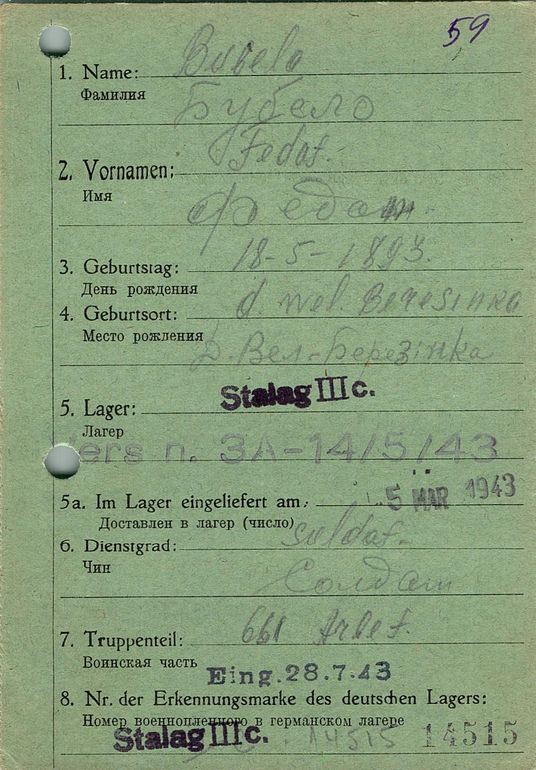 59
1. Name: Bubelo
Фамилия
Бубело
Fedot.
2. Vornamen:
Имя
Федот.
18-5-1893.
3. Geburtstag:
День рождения
4. Geburtsort: d. Wel. Beresinka
Место рождения
Д. Вел-Березінка
Stalag IIIc.
5. Lager:
Лагер
ers n. 3A-14/5/43
5a. Im Lager eingeliefert am: 5 MÄR 1943
Доставлен в лагер (число)
6. Dienstgrad: soldat-
Чин
Солдат
7. Truppenteil: 661 Arbet.
Воинская часть
Eing. 28.7.43
8. Nr. der Erkennungsmarke des deutschen Lagers:
Номер военнопленного в германском лагере
Stalag IIIc. 14515 14515